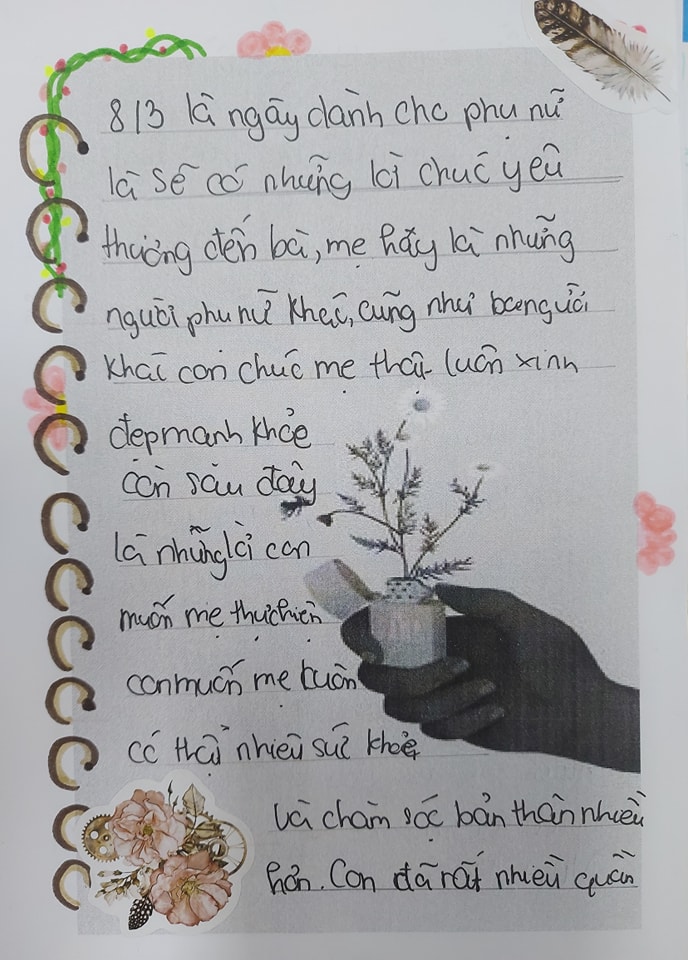 8/3 là ngày dành cho phụ nữ
là sẽ có những lời chúc yêu
thương đến bà, mẹ hãy là những
người phụ nữ khác, cũng như bao người
khác con chúc mẹ thật luôn xinh
đẹp mạnh khỏe
còn sâu đây
là những lời con
muốn mẹ thực hiện
con muốn mẹ luôn
có thật nhiều sức khỏe
và chăm sóc bản thân nhiều
hơn. Con đã rất nhiều quần